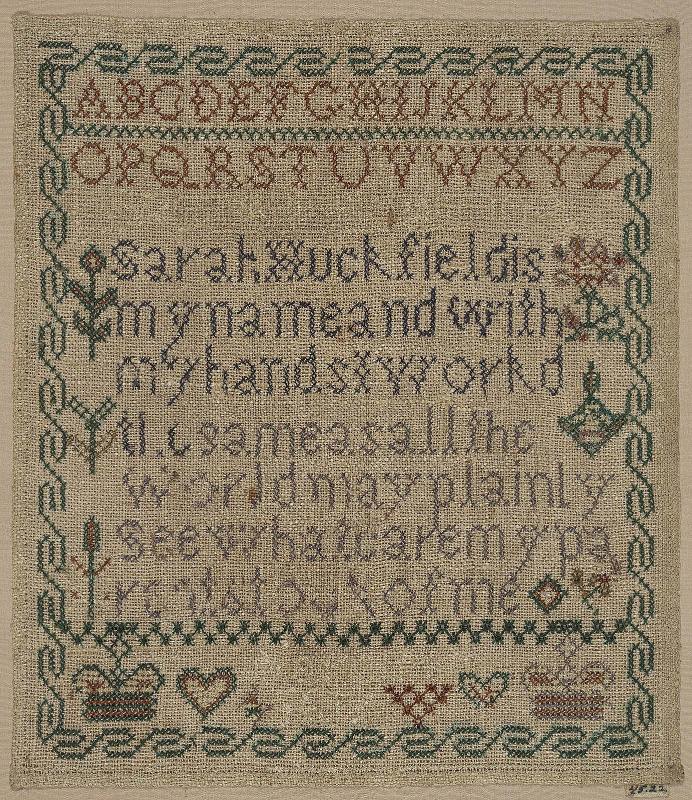 ABCDEFGHIJKLMN
OPQRSTUVWXYZ
Sarah Huckfield is
my name and with
my hands i workd
the same as all the
World may plainly
See what care my pa
rents took of me
45.22